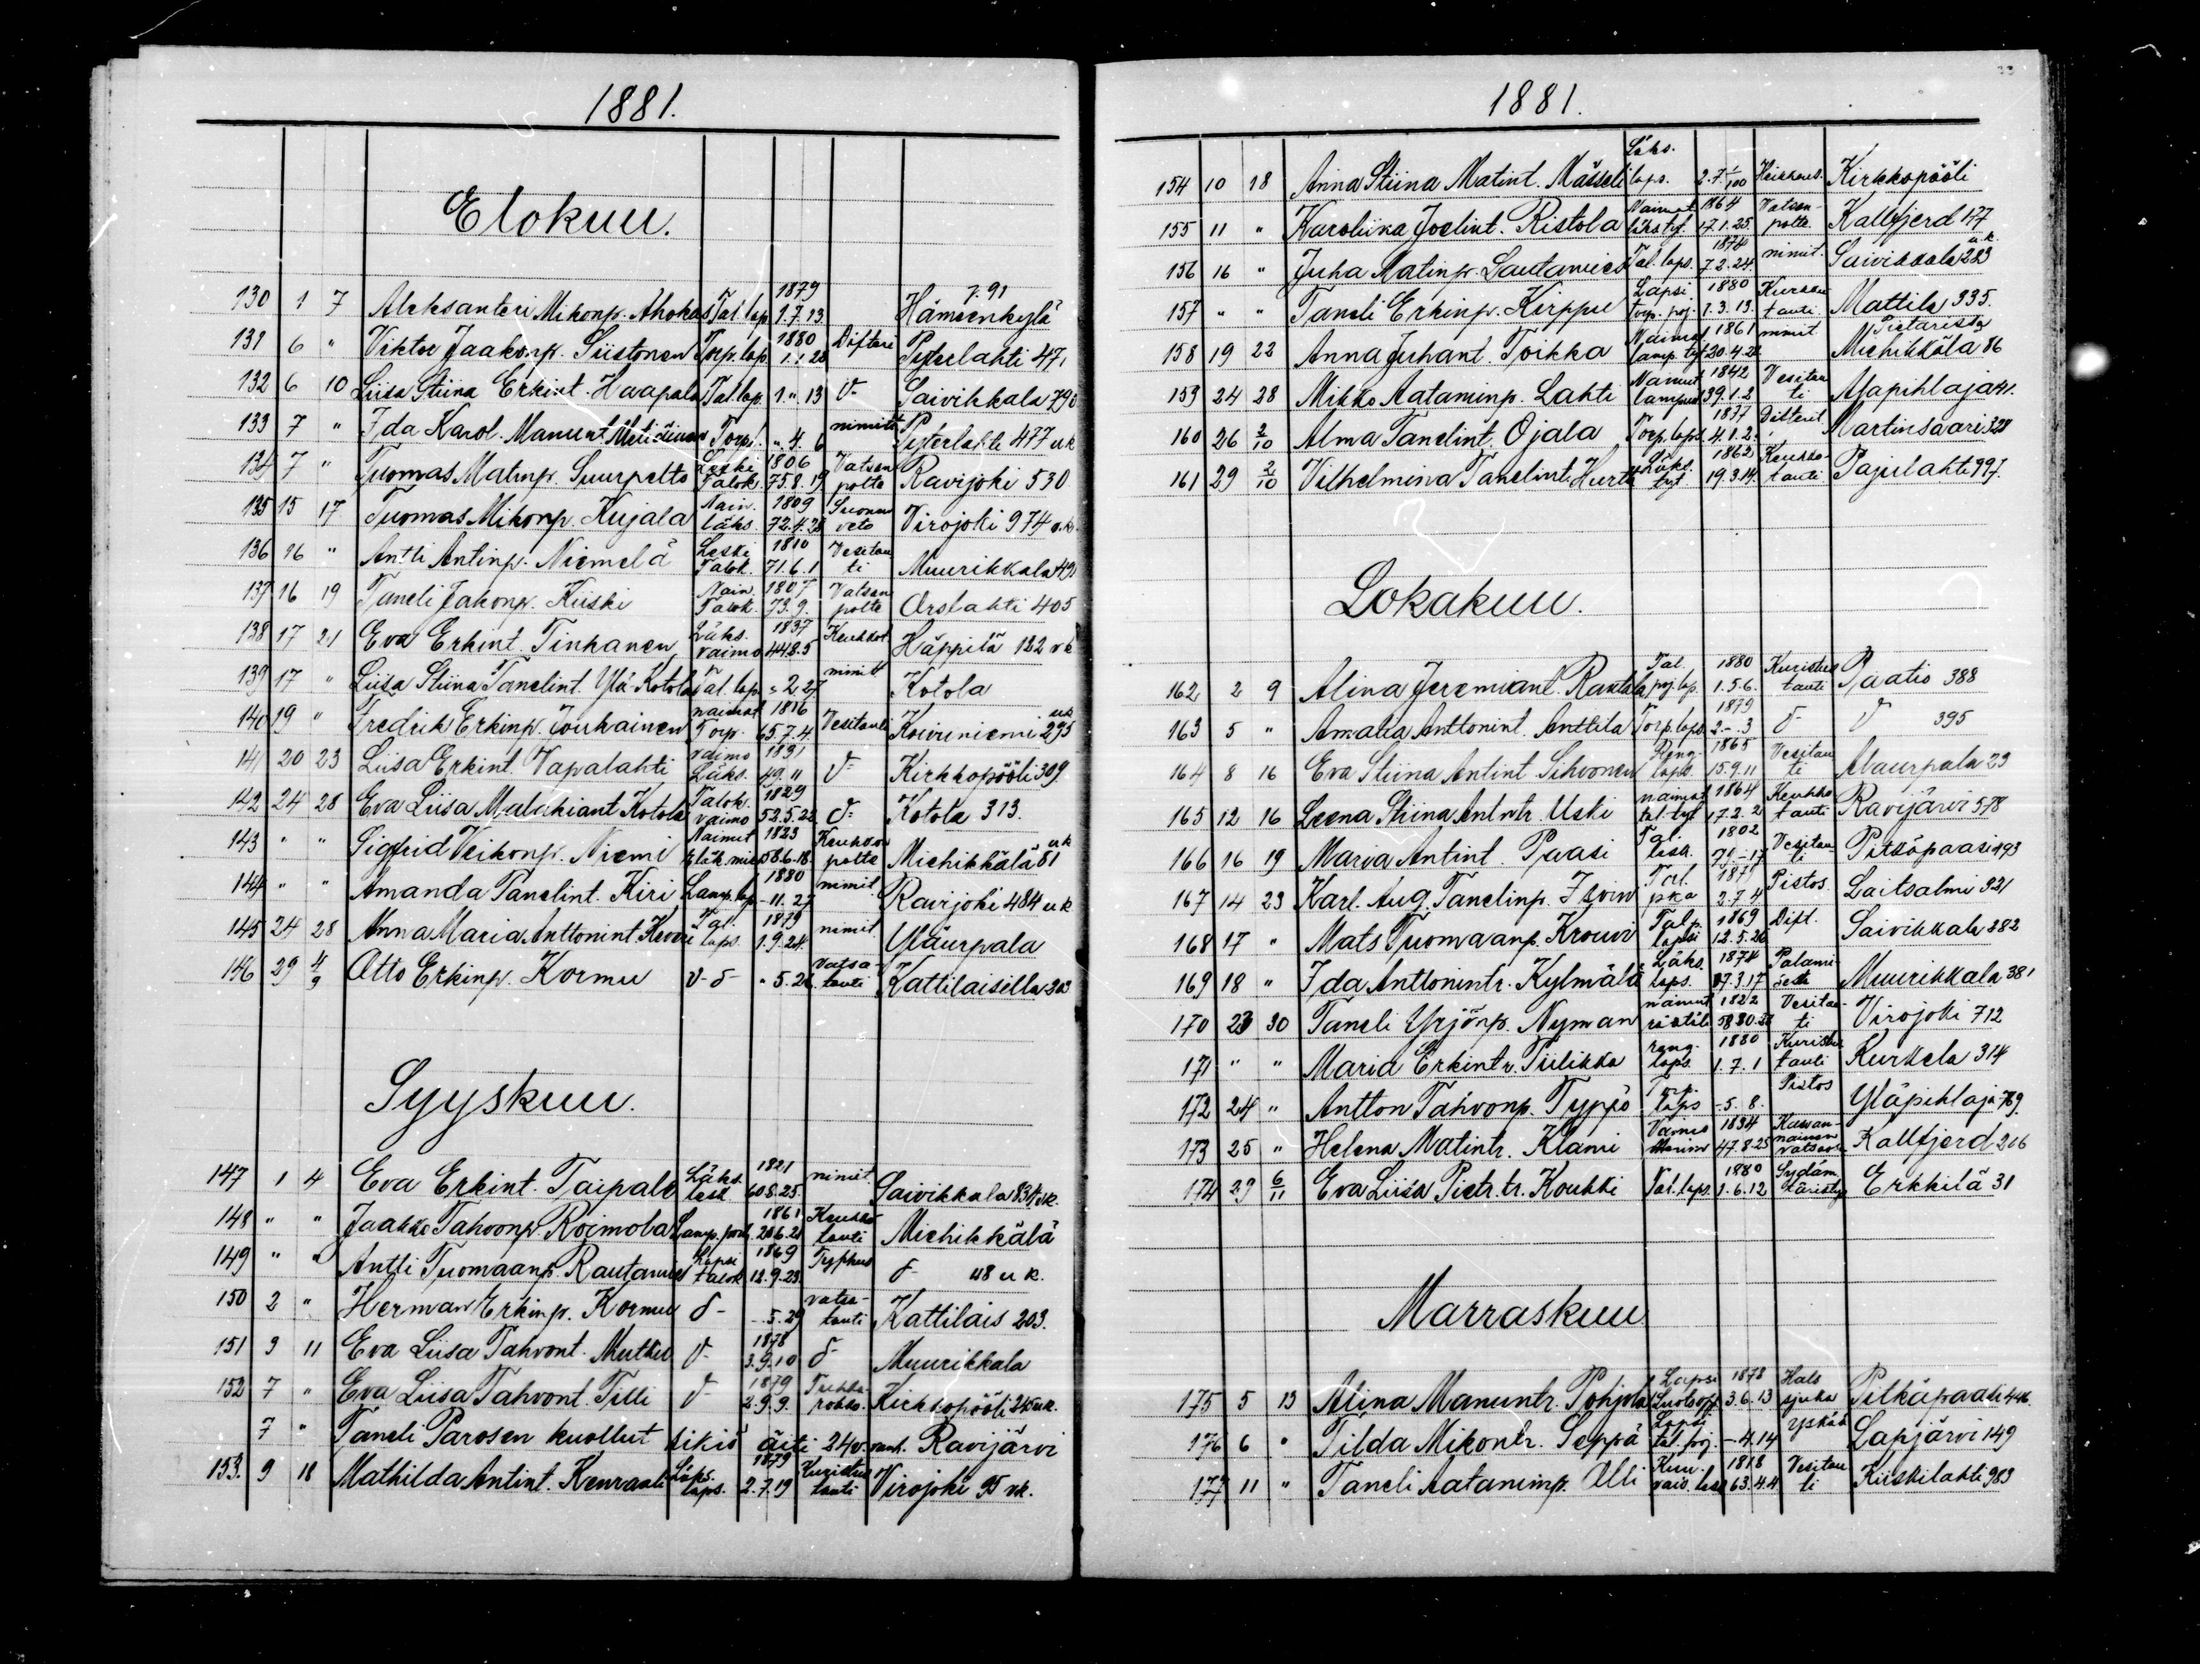 1881.
Elokuu.
130 1 7 Aleksanteri Mikonp. Ahokas Tal. lap 1879 1.7.13. 7.91 Hämeenkylä
131 6 " Viktor Jaakonp. Siistonen Torp. lap. 1880 1.1.28 Difteri Pyterlahti 47,
132 6 10 Liisa Stiina Erkint. Haapala Tal. lap. 1 " 13 Saivikkala 790
133 7 " Ida Karol. Manunt Torp. " 4. 6 nimitt Pyterlahti 477 uk
134 7 " Tuomas Matinp. Suurpelto Leski Talok. 1806 75.8.19 Vatsan polte Ravijoki 530
135 15 17 Tuomas Mikonp. Kujala Nain. läks. 1809 72.4.28 Suonen veto Virojoki 974 u.k.
136 16 " Antti Antinp. Niemelä Leski Talok. 1810 71.6.1 Vesitau ti Muurikkala 490
137 16 19 Taneli Jakonp. Kiiski Nain. Talok. 1807 73.9. Vatsan polte Orslahti 405
138 17 21 Eva Erkint. Tinkanen Läks. vaimo 1837 44.8.5 Keuhkot. Häppilä 122 vk
139 17 " Liisa Stiina Tanelint. Ylä-Kotola Tal. lap. " 2.27 nimitt Kotola
140 19 " Fredrik Erkinp. Jouhainen naimat Torp. 1816 65.7.4. Vesitauti Koivuniemi 295 uk
141 20 23 Liisa Erkint. Vapalahti vaimo Läks. 1831 49.11 Kirkkopööli 309
142 24 28 Eva Liisa Malakiant Kotola Talok. vaimo 1829 52.5.23 Kotola 313.
143 " " Sigfrid Veikonp. Niemi Naimut Eläk.mies 1823 58.6.18 Keuhkon polte Miehikkälä 81 uk
144 " " Amanda Tanelint. Kiri Lamp. lap 1880 - 11. 27 nimit. Ravijoki 484 uk
145 24 28 Anna Maria Anttonint Keveri Tal. laps. 1879 1.9.24. nimit. Yläurpala
146 29 4/9 Otto Erkinp. Kormu " 5. 26. Vatsa- tauti Kattilaisella 203
Syyskuu.
147 1 4 Eva Erkint. Taipale Läks. lesk 1821 60.8.25. nimit. Saivikkala 834 vk.
148 " " Jaakko Tahvonp. Roimola Lamp. poik 1861 20.6.21 Keuhko tauti Miehikkälä
149 " " Antti Tuomaanp. Rautamies Lapsi talok 1869 12.9.23. Typhus 48 u k.
150 2 " Herman Erkinp. Kormu - 5. 29 vatsa- tauti Kattilais 203.
151 3 11 Eva Liisa Tahvont. Muttu 1878 3.9.10 Muurikkala
152 7 " Eva Liisa Tahvont. Tilli 1879 2.9.9. Tuhka- rokko. Kirkkopööli 245 uk.
7 " Taneli Parosen kuollut sikiö äiti 24 v. vanh. Ravijärvi
153. 9 18 Mathilda Antint. Kenraali Läks. laps. 1879 2.7.19 Kuristus tauti Virojoki 95 vk.
1881.
154 10 18 Anna Stiina Matint. Mässeli Läks. laps. 2.7.1/100 Heikkous. Kirkkopööli
155 11 " Karoliina Joelint. Ristola Naimat läks tyt. 1864 17.1.25. Vatsan- polte. Kallfjerd 177
156 16 " Juha Matinp. Lautamies Tal. laps. 1874 7 2. 24. nimit. Saivikkala 283 u.k.
157 " " Taneli Erkinp. Kirppu Lapsi. Torp. poj. 1880 1. 3. 13. Kurkku tauti. Mattila 335.
158 19 22 Anna Juhant. Toikka Naimat lamp. tyt 1861 20.4.26 nimit Pietarista Miehikkälä 86
159 24 28 Mikko Aataminp. Lahti Naimut lampuo 1842 39.1.2 Vesitau ti Alapihlaja 41.
160 26 2/10 Alma Tanelint. Ojala Torp. laps. 1837 4.1.2. Difterit. Martinsaari 328
161 29 2/10 Vilhelmina Tanelint. Hurtta Läks. tyt 1862 19.3.14. Keuhko- tauti Pajulahti 997.
Lokakuu.
162 2 9 Alina Jeremiant. Rantala Tal. poj. lap. 1880 1.5.6. Kuristus tauti Paatio 388
163 5 " Amalia Anttonint. Anttila Torp. laps. 1879 2.-.3 395
164 8 16 Eva Stiina Antint Sihvonen Reng- laps. 1865 15.9.11 Vesitau ti Alaurpala 23
165 12 16 Leena Stiina Antintr. Uski naimat tal. tyt 1864 17.2.2 Keuhko- tauti Ravijärvi 578
166 16 19 Maria Antint. Paasi Tal. lesk. 1802 Vesitau ti Pitkäpaasi 493
167 14 23 Karl. Aug. Tanelinp. Ilvin Tal. pka 187 2.7 4 Pistos. Laitsalmi 921
168 17 " Mats Tuomaanp. Krouvi Talp. lapsi 1869 12.5.26 Dift. Saivikkala 282
169 18 " Ida Anttonintr. Kylmälä Läks. laps. 1874 7.3.17 Palami sesta Muurikkala 381
170 23 30 Taneli Yrjönp. Nyman naimut räätäli 1822 58.80.28 Vesitau- ti Virojoki 712
171 " " Maria Erkintr. Pulikka reng. laps. 1880 1.7.1 Kuristus tauti Kurkela 314
172 24 " Antton Tahvonp. Typpö Torp. laps - 5. 8. Pistos Yläpihlaja 769
173 25 " Helena Matintr. Klami Vaimo 1834 47.8.25 Kallfjerd 216
174 29 6/11 Eva Liisa Pietr. tr. Koukki Tal. laps. 1880 1.6.12 Sydäm. Erkkilä 31
Marraskuu
175 5 13 Alina Manuntr. Pohjola Lapsi 1878 3.6.13 Hals sjuka Pitkäpaasi 446
176 6 " Tilda Mikontr. Seppä Lapsi tal. poj. - 4.14 Yskää Lapjärvi 149
177 11 " Taneli Aataminp. Olli 1818 63.4.4 Vesitau ti Kiiskilahti 983